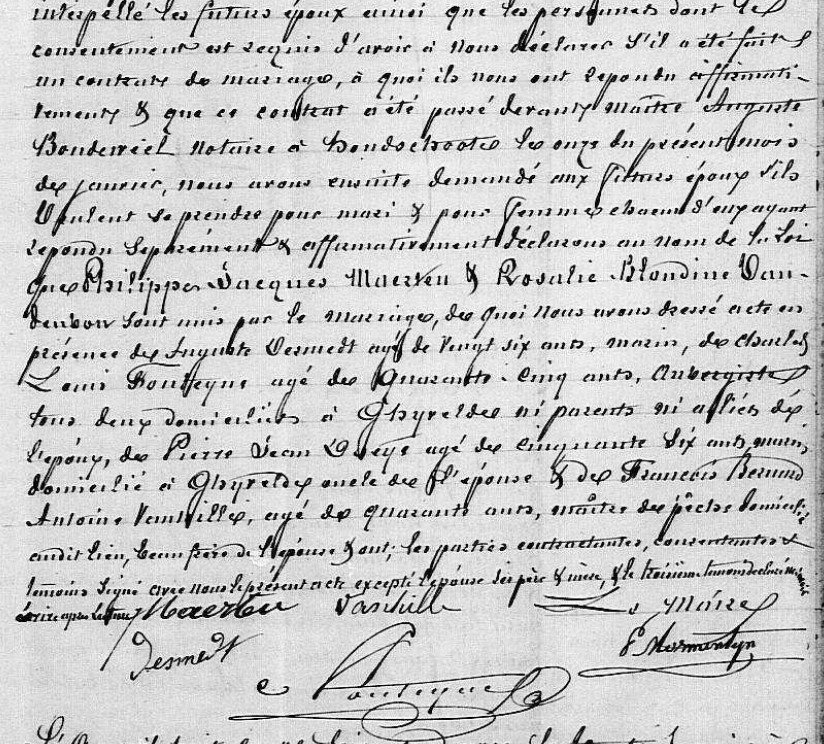 interpellé les futurs époux ainsi que les personnes dont le
consentement est requis d'avoir à nous déclarer s'il a été fait
un contrat de mariage, à quoi ils nous ont repondu affirmati-
vement & que ce contrat a été passé devant maître Auguste
notaire à hondschoote le onze du présent mois
de janvier, nous avons ensuite demandé aux futurs époux s'ils
veulent se prendre pour mari & pour femme chacun d'eux ayant
repondu séparément & affirmativement déclarons au nom de la Loi
que Philippe Jacques Maerten & Rosalie Blondine Van-
sont unis par le mariage, de quoi nous avons dressé acte en
présence de Auguste Desmedt agé de vingt six ans, marin, de charles
Louis agé de quarante-cinq ans, Aubergiste
tous deux domiciliés à Ghyvelde ni parents ni alliés de
l'epoux, de Pierre Jean agé de cinquante six ans, marin
domicilié à Ghyvelde oncle de l'épouse & de François Bernard
Antoine Vanhille, agé de quarante ans, maître de pêche domicilié
audit lieu, beau frère de l'épouse & ont, les parties contractantes, consentantes &
temoins signé avec nous le présent acte excepté l'épouse ses père & mère, & le troisième temoin
écrire après lecture Maerten Vanhille Le Maire
Desmedt